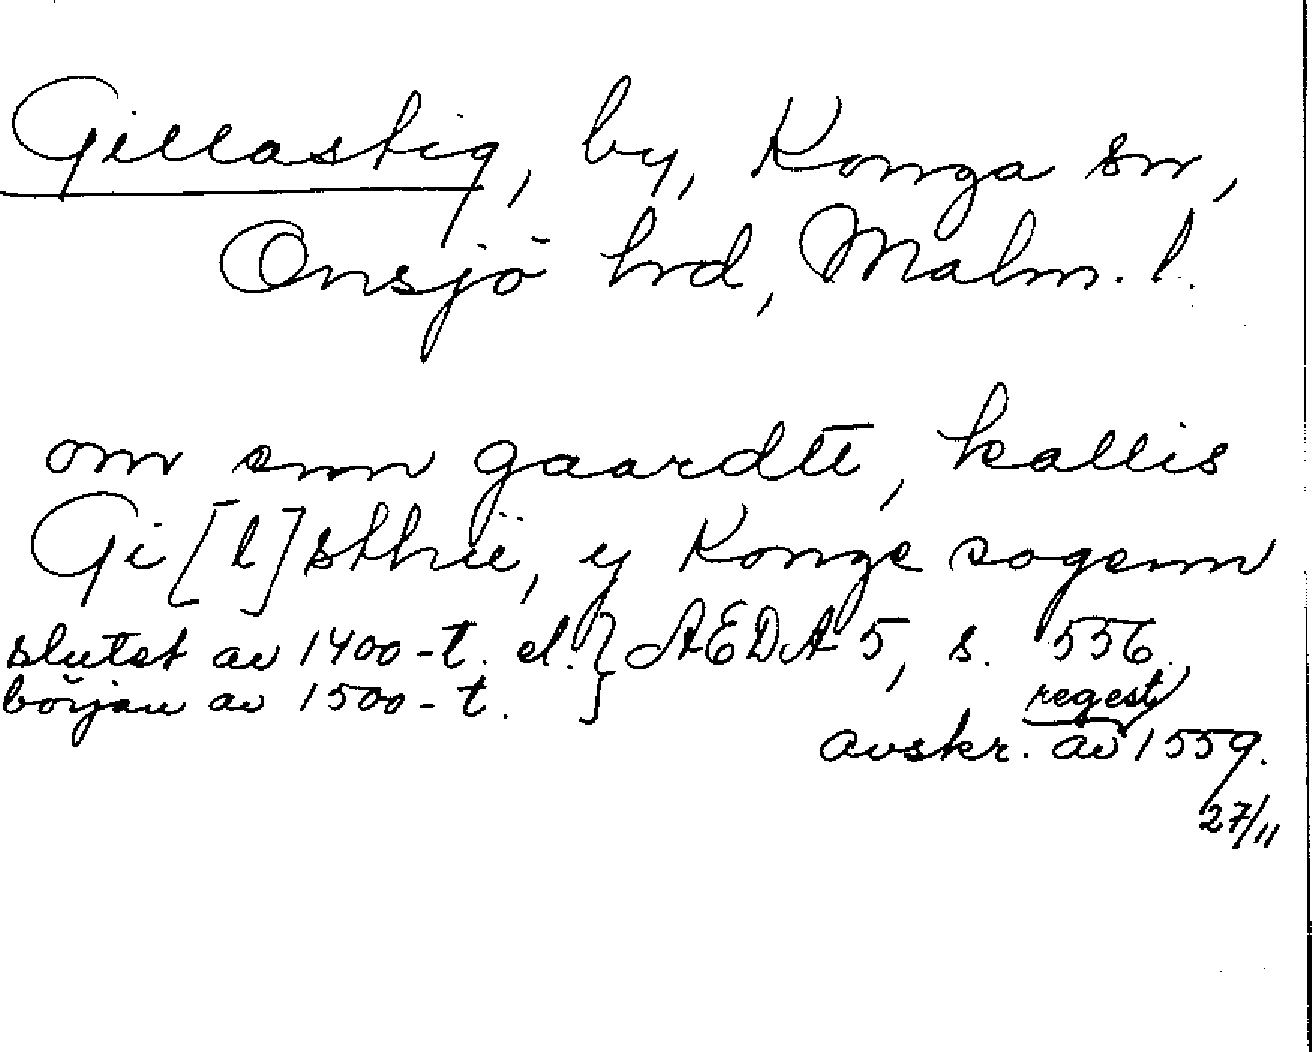 Gillastig, by, Konga sn,
Onsjö hrd, Malm. l.
om enn gaardtt, kallis
Gi[l]sthii, y Konge sogenn
slutet av 1400-t. el. } AEDA 5, s. 556.,
början av 1500-t.
regest
avskr. av 1559.
27/11